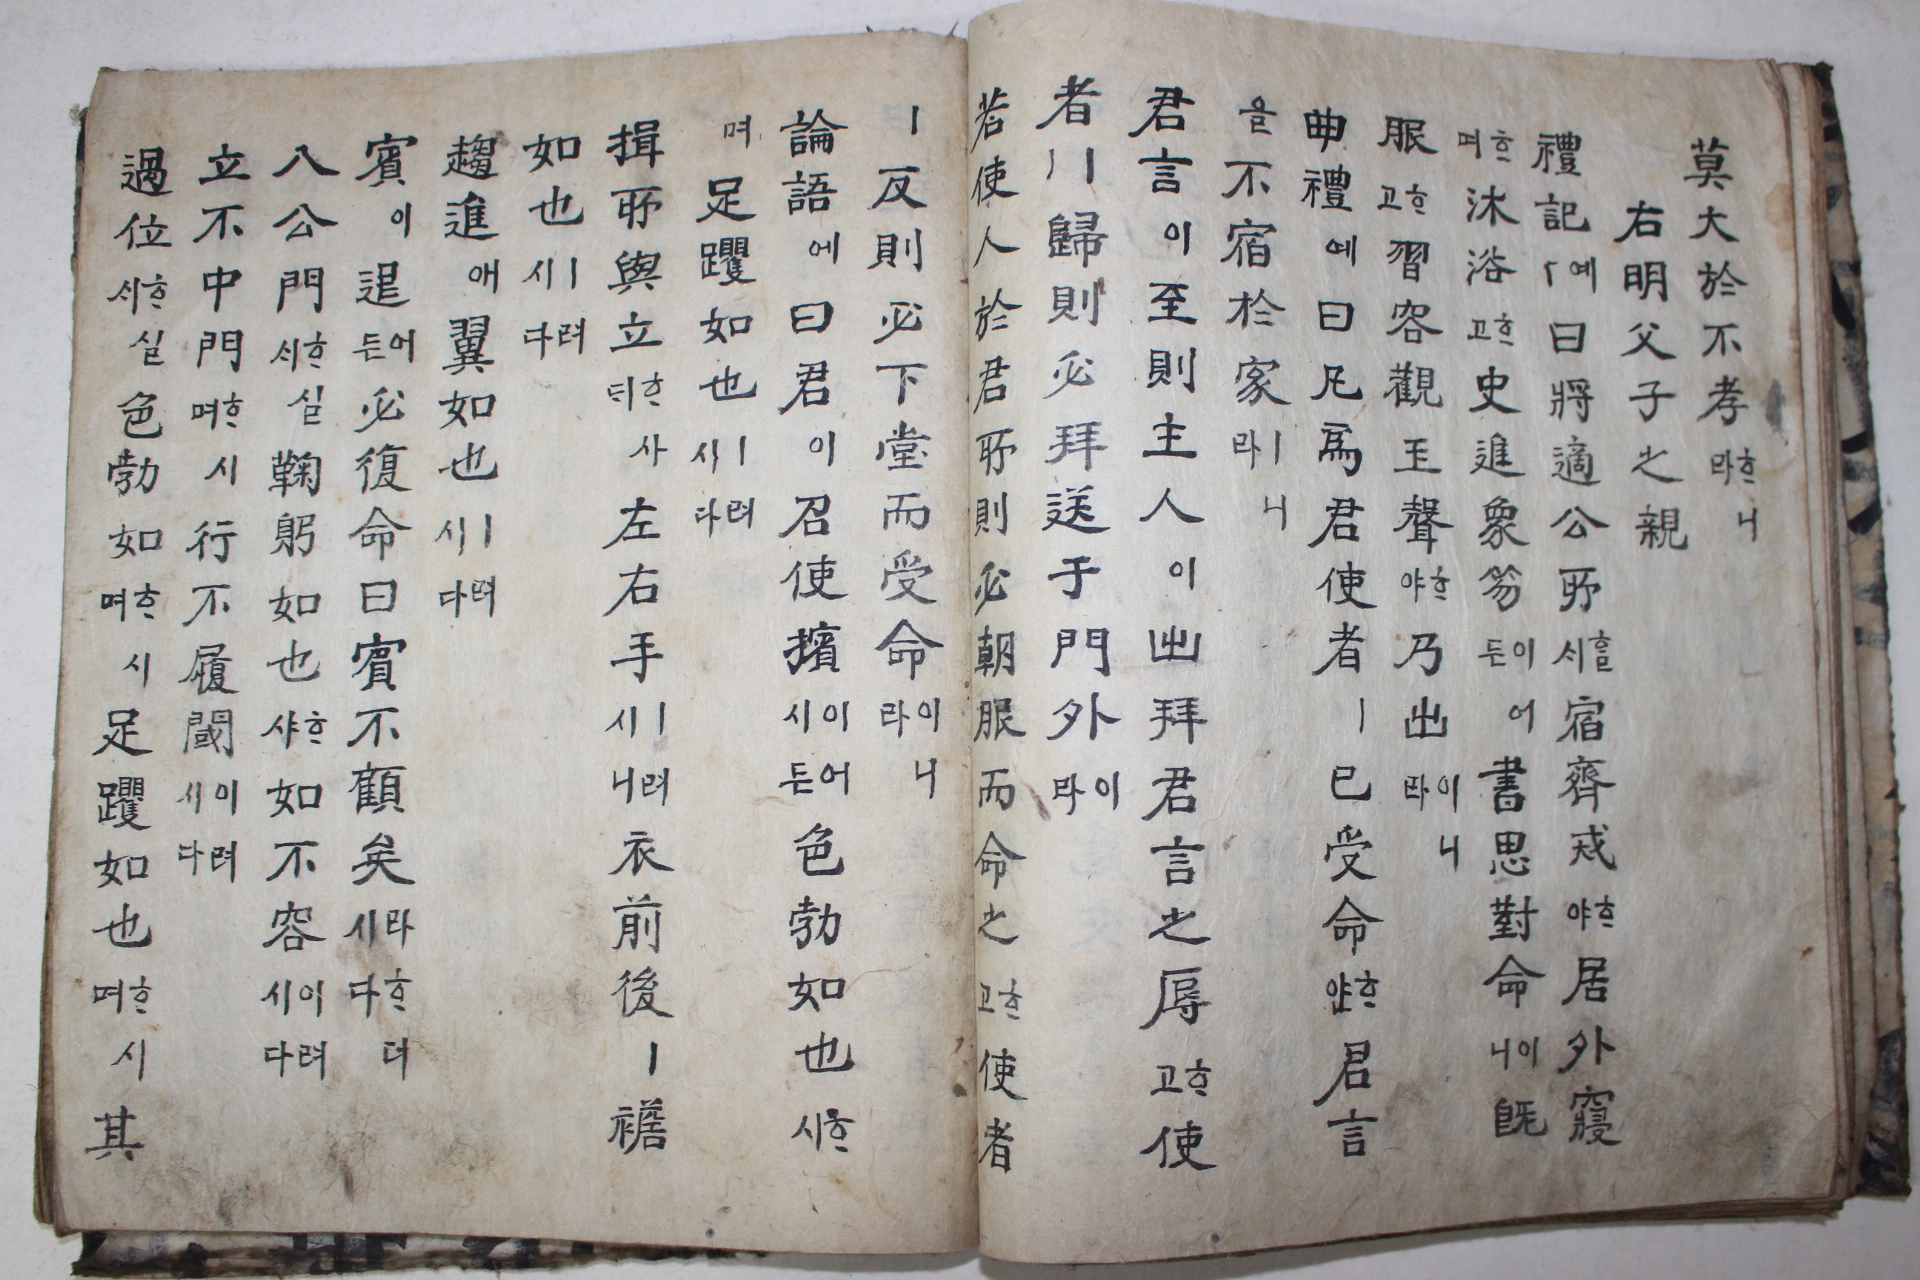 莫大於不孝ᄒᆞ니라
右明父子之親
禮記예曰將適公所ᄒᆞᆯ시宿齊戒ᄒᆞ야居外寢
ᄒᆞ며沐浴ᄒᆞ고史進象笏이어든書思對命이니旣
服ᄒᆞ고習容觀玉聲ᄒᆞ야乃出이니라
曲禮예曰凡爲君使者ㅣ已受命ᄒᆞ얀君言
을不宿於家ㅣ니라
君言이至則主人이出拜君言之辱ᄒᆞ고使
者ㅣㅣ歸則必拜送于門外이라
若使人於君所則必朝服而命之ᄒᆞ고使者
ㅣ反則必下堂而受命이니라
論語에曰君이召使擯이어시든色勃如也ᄒᆞ시
며足躩如也ㅣ러시다
揖所與立ᄒᆞ사ᄃᆡ左右手ㅣ러시니衣前後ㅣ襜
如也ㅣ러시다
趨進애翼如也ㅣ러시다
賓이退어든必復命曰賓不顧矣라ᄒᆞ더시다
入公門ᄒᆞ실시鞠躬如也ᄒᆞ샤如不容이러시다
立不中門ᄒᆞ시며行不履閾이러시다
過位ᄒᆞ실시色勃如ᄒᆞ시며足躩如也ᄒᆞ시며其